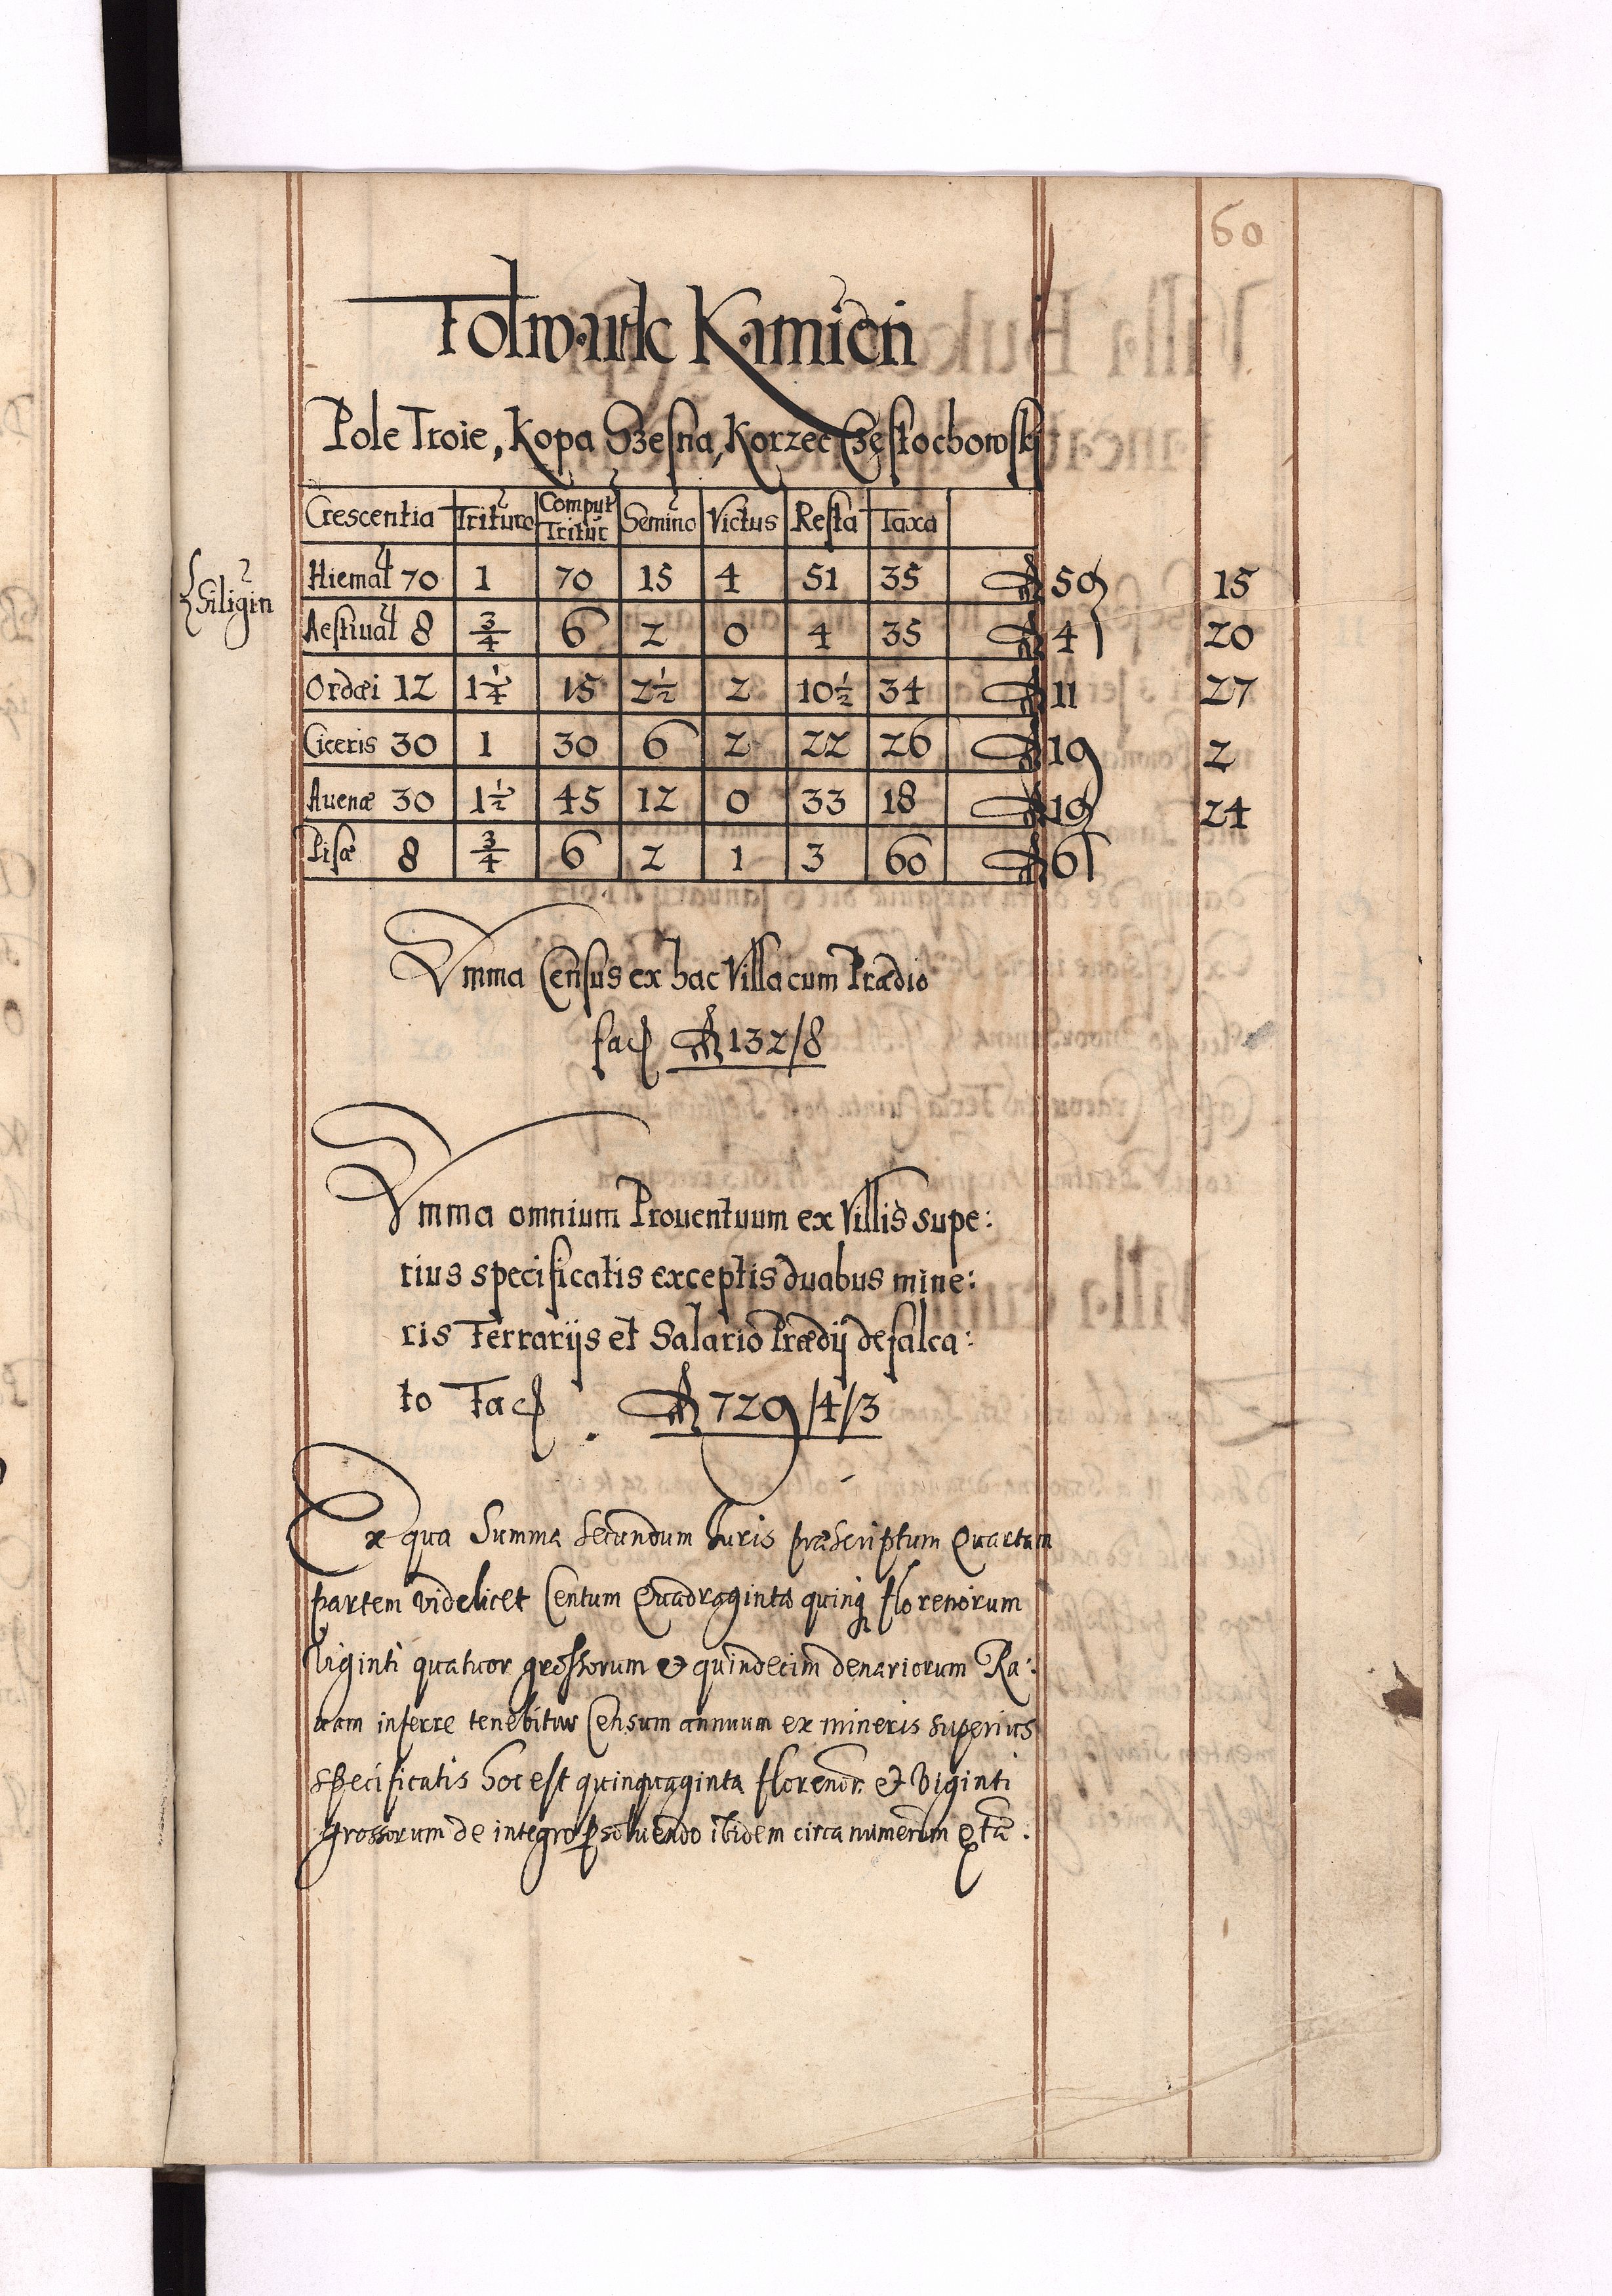 60
Folwark Kamień
Pole Troie, Kopa Szesna, Korzec Częstochowski
Crescentia Trituro Comput Tritur Semino Victus Resta Taxa
Siligin
Hiemal 70 1 70 15 4 51 35 fl 59 15
Aestiual 8 3/4 6 2 0 4 35 fl 4 20
Ordæi 12 1 1/4 15 2 1/2 2 10 1/2 34 fl 11 27
Ciceris 30 1 30 6 2 22 26 fl 19 2
Auenæ 30 1 1/2 45 12 0 33 18 fl 19 24
Pisæ 8 3/4 6 2 1 3 60 fl 6
Summa Census ex hac Villa cum Prædio
fac fl 132/8
Summa omnium Prouentuum ex Villis supe:
rius specificatis exceptis duabus mine:
ris Ferrarijs et Salario Prædij defalca:
to Fac fl 729/4/3
Ex qua Summa secundum Iuris præscriptum Quartam
partem videlicet Centum Quadraginta quinq florenorum
Viginti quatuor grossorum et quindecim denariorum Ra:
uam inferre tenebitur Censum annuum ex mineris superius
specificatis hoc est quinquaginta florenor et Viginti
grossorum de integro psoluendo ibidem circa numerum